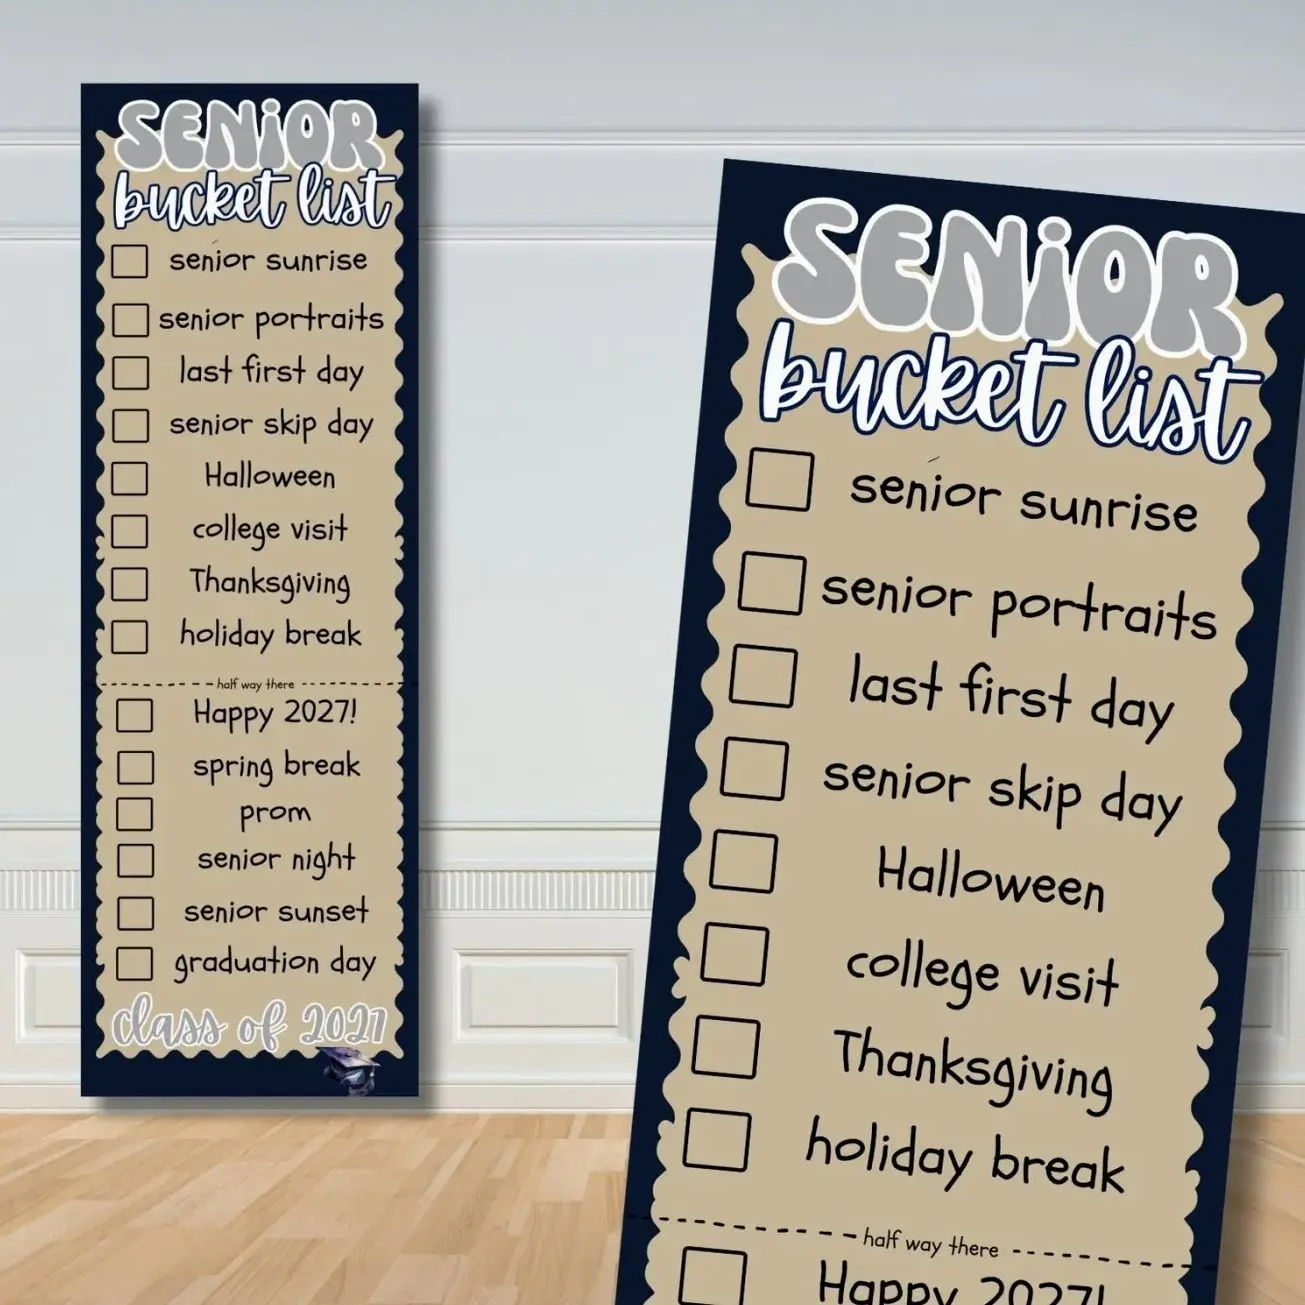 SENiOR
bucket list
senior sunrise
senior portraits
last first day
senior skip day
Halloween
college visit
Thanksgiving
holiday break
half way there
Happy 2027!
spring break
prom
senior night
senior sunset
graduation day
class of 2027
SENiOR
bucket list
senior sunrise
senior portraits
last first day
senior skip day
Halloween
college visit
Thanksgiving
holiday break
half way there
Happy 2027!